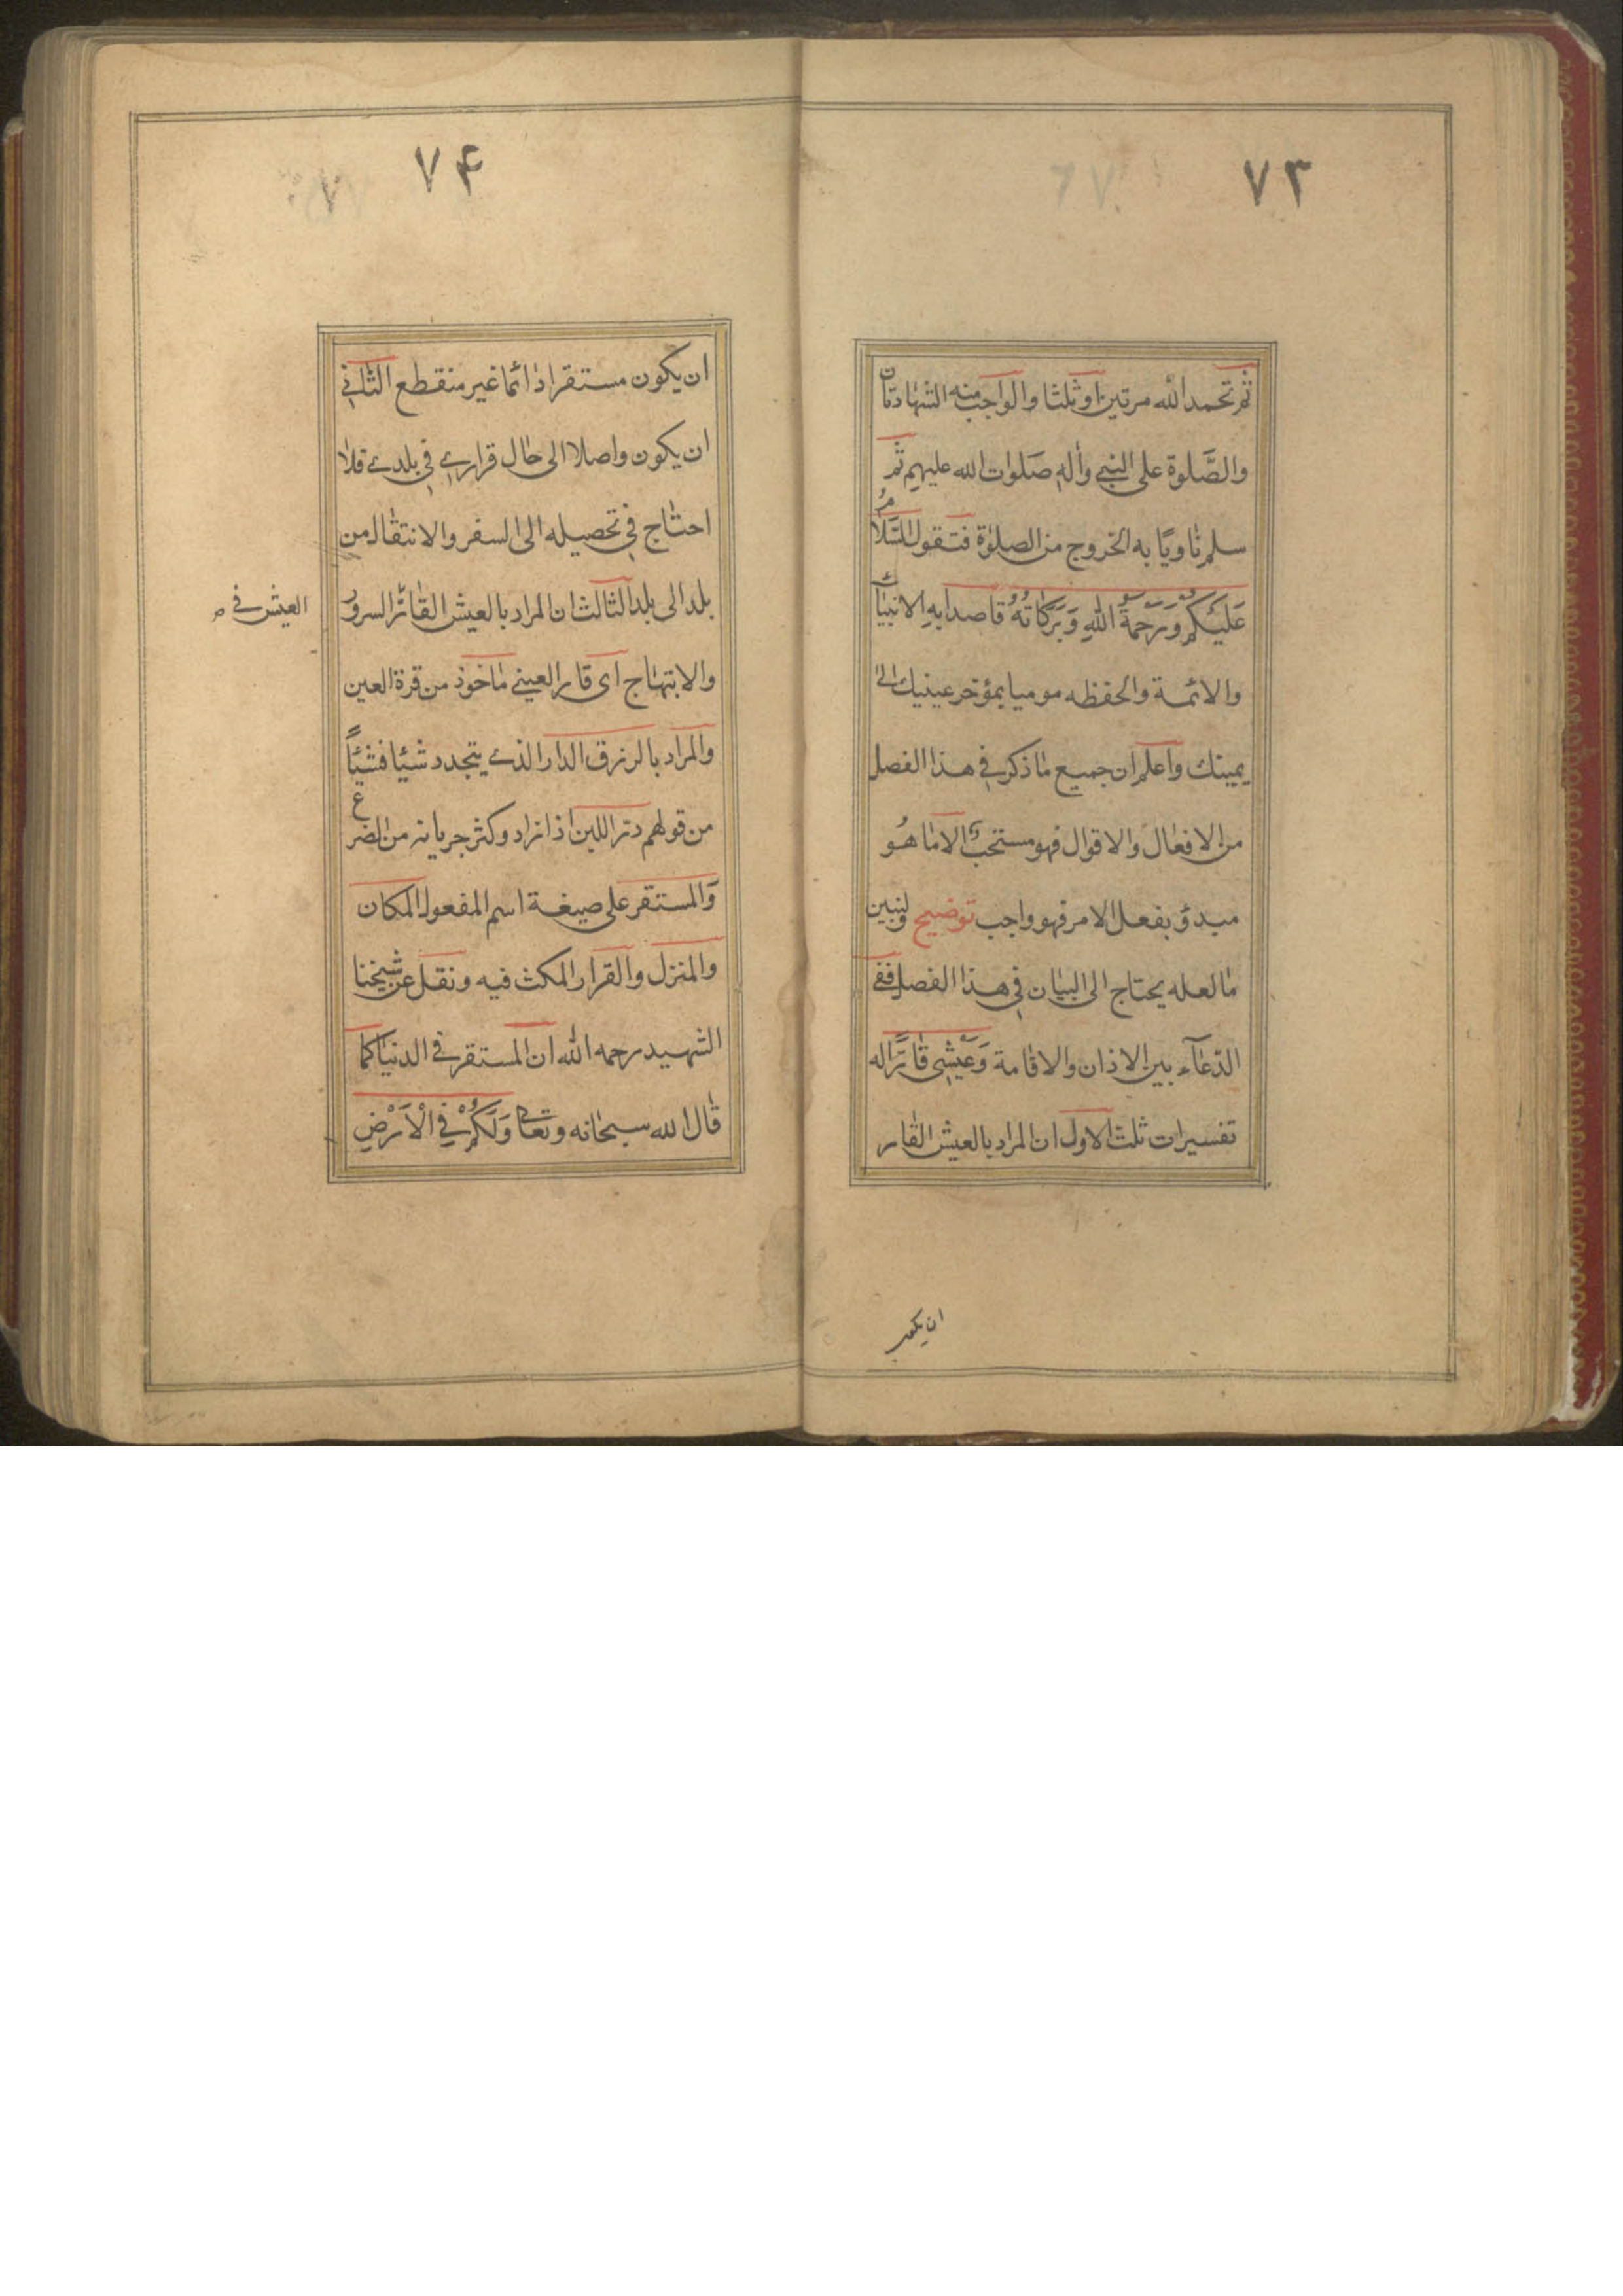 ٧٣
ثم تحمد الله مرتين او ثلثا والواجب منه الشهادتان
والصَّلوة على النبي وأله صَلوات الله عليهم ثم
سلم ناويًا به الخروج من الصلوة فتقول السَّلامُ
عَلَيْكُمْ وَرَحْمَةُ اللهِ وَبَرَكَاتُهُ قاصدا بهِ الانبياء
والائمة والحفظه موميا بمؤخر عينيك الى
يمينك واعلم ان جميع ما ذكر في هذا الفصل
من الافعال والاقوال فهو مستحب الا ما هُو
مبدؤ بفعل الامر فهو واجب توضيح ولنبين
ما لعله يحتاج الى البيان في هذا الفصل ففى
الدّعآء بين الاذان والاقامة وَعَيْشِى قَارًّا له
تفسيرات ثلث الاول ان المراد بالعيش القار
ان يكون
٧۴
ان يكون مستقرا دائما غير منقطع الثاني
ان يكون واصلا الى حال قراري في بلدي فلا
احتاج في تحصيله الى السفر والانتقال من
بلد الى بلد الثالث ان المراد بالعيش القارّ السرور
العيش في
والابتهاج اى قار العيني ماخوذ من قرة العين
والمراد بالرزق الدار الذي يتجدد شيئا فشيئاً
من قولهم درّ اللبن اذا زاد وكثر جريانه من الضرع
وَالمستقر على صيغة اسم المفعول المكان
والمنزل والقرار المكث فيه ونقل عن شيخنا
الشهيد رحمه الله ان المستقر في الدنيا كما
قال الله سبحانه وتعالى وَلَكُمْ فِي الْاَرْضِ